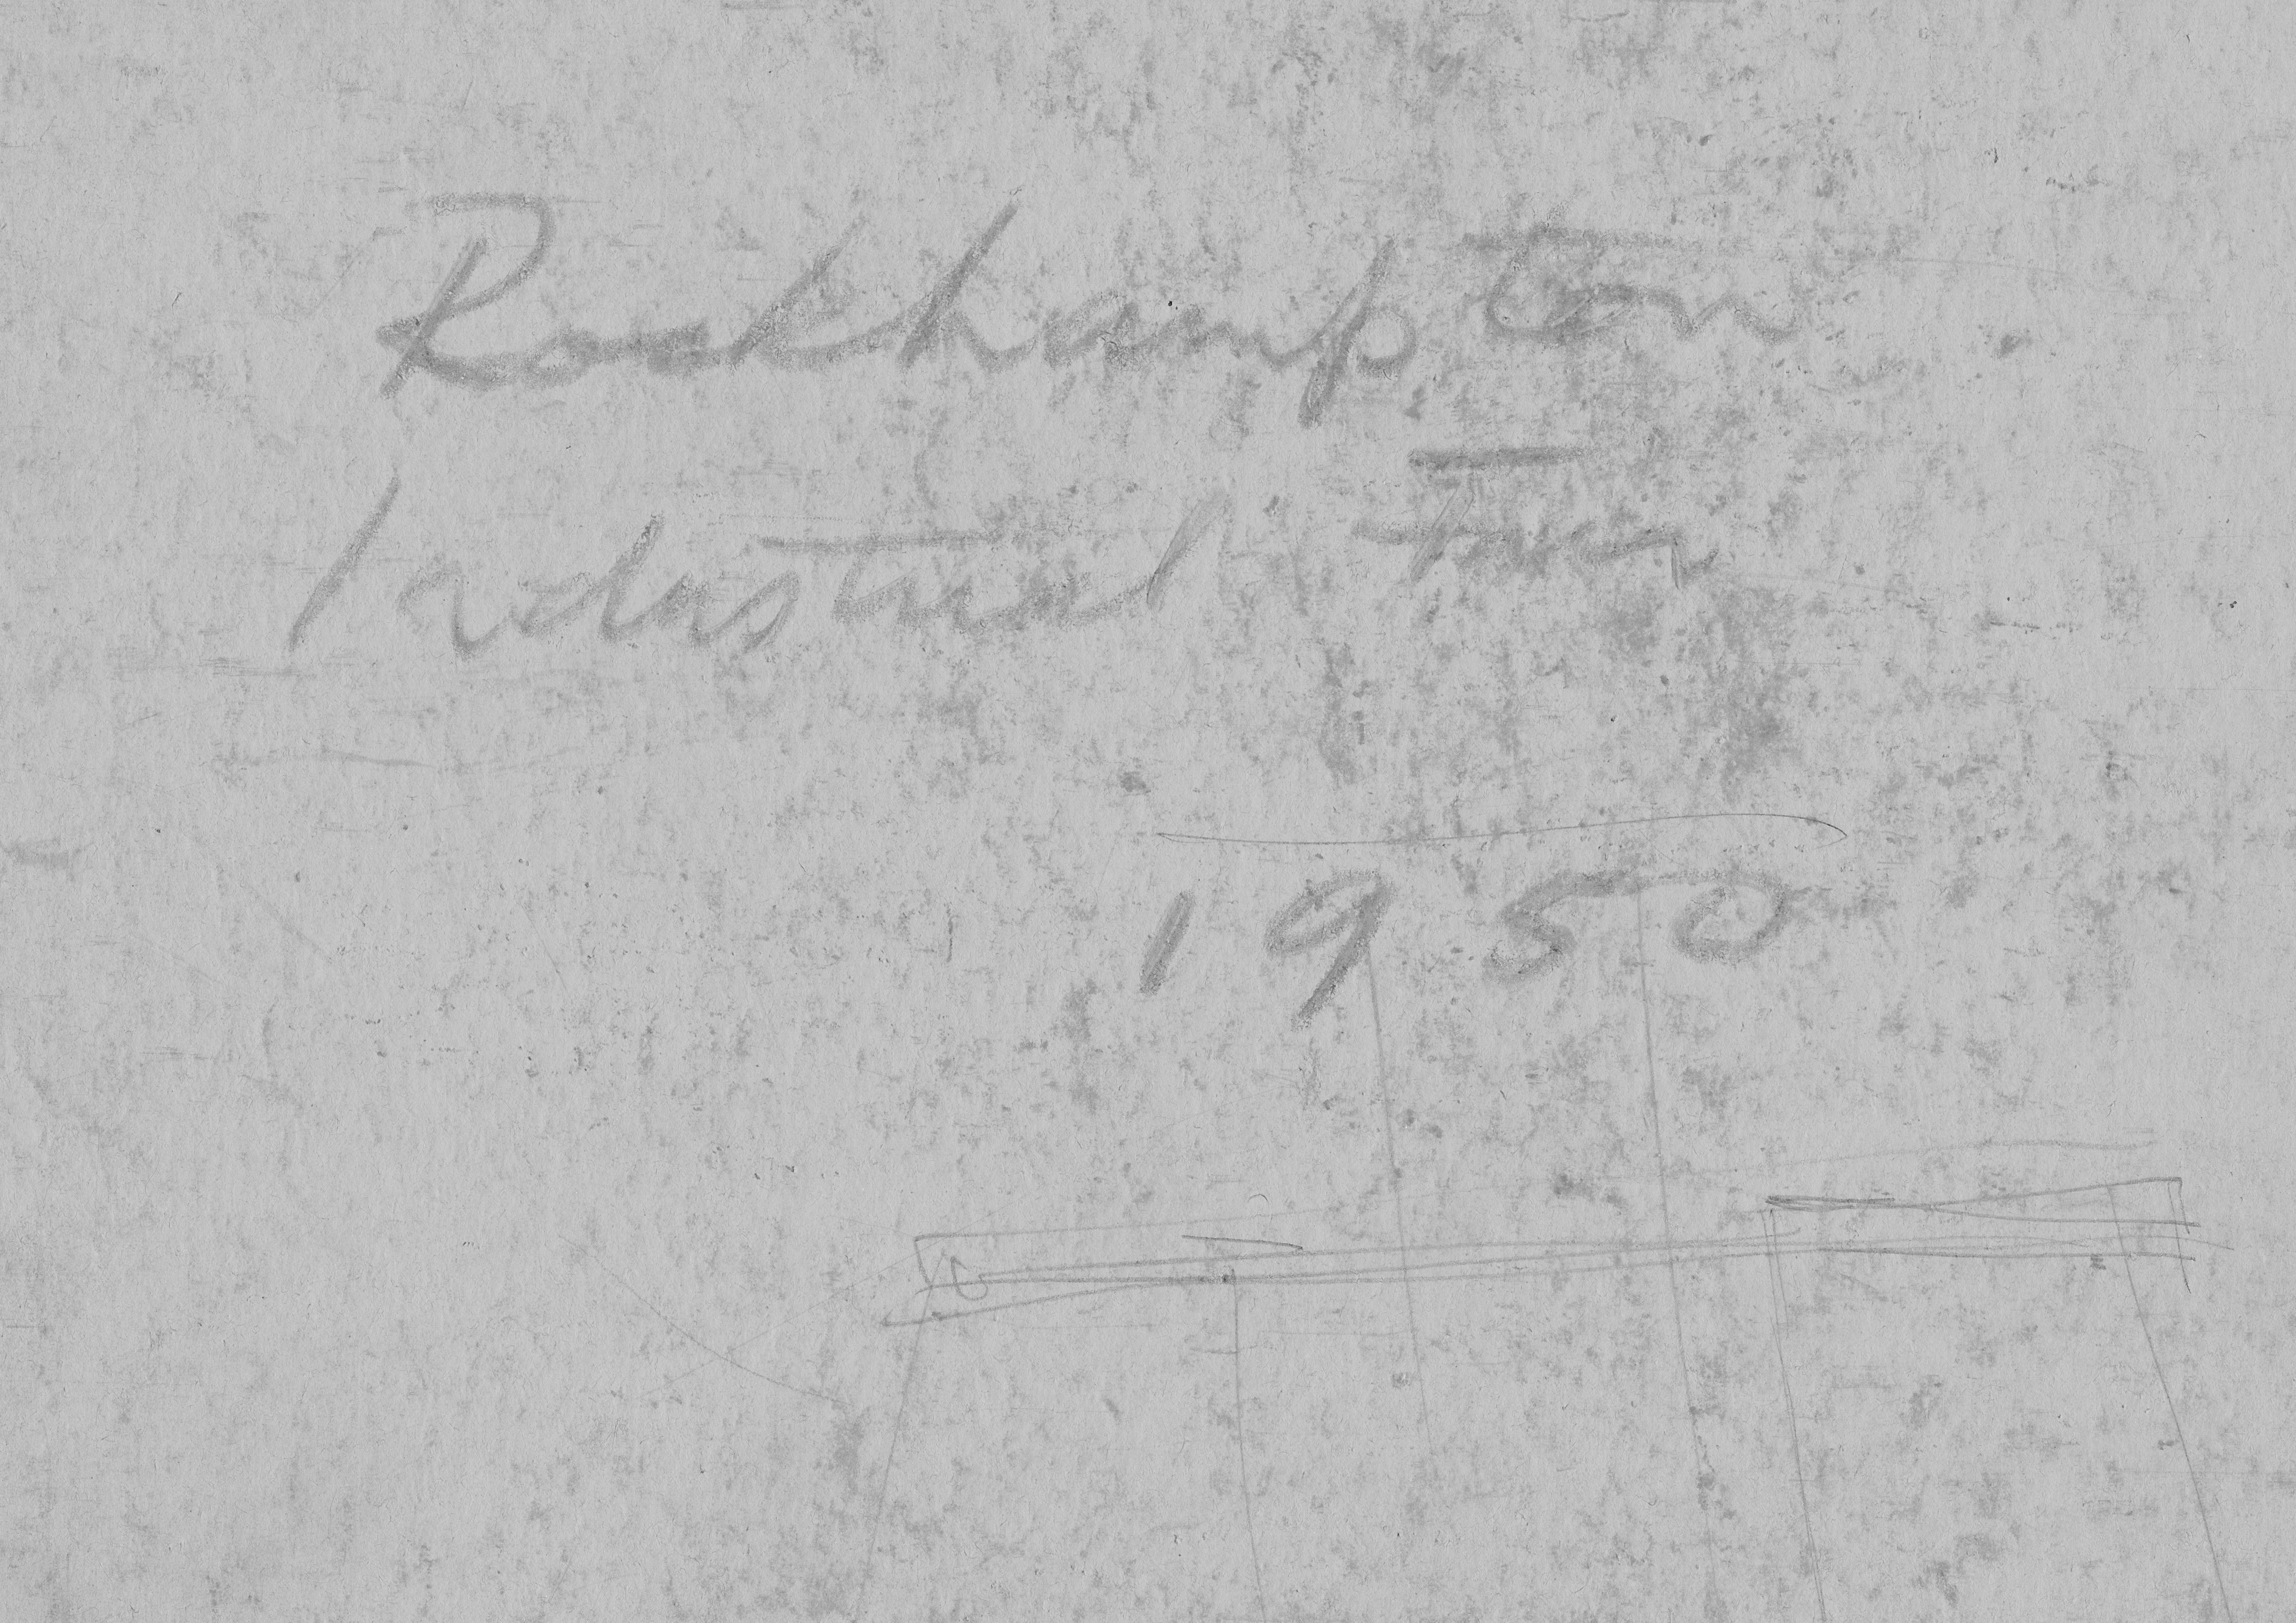 Rockhampton
Industrial Fair
1950